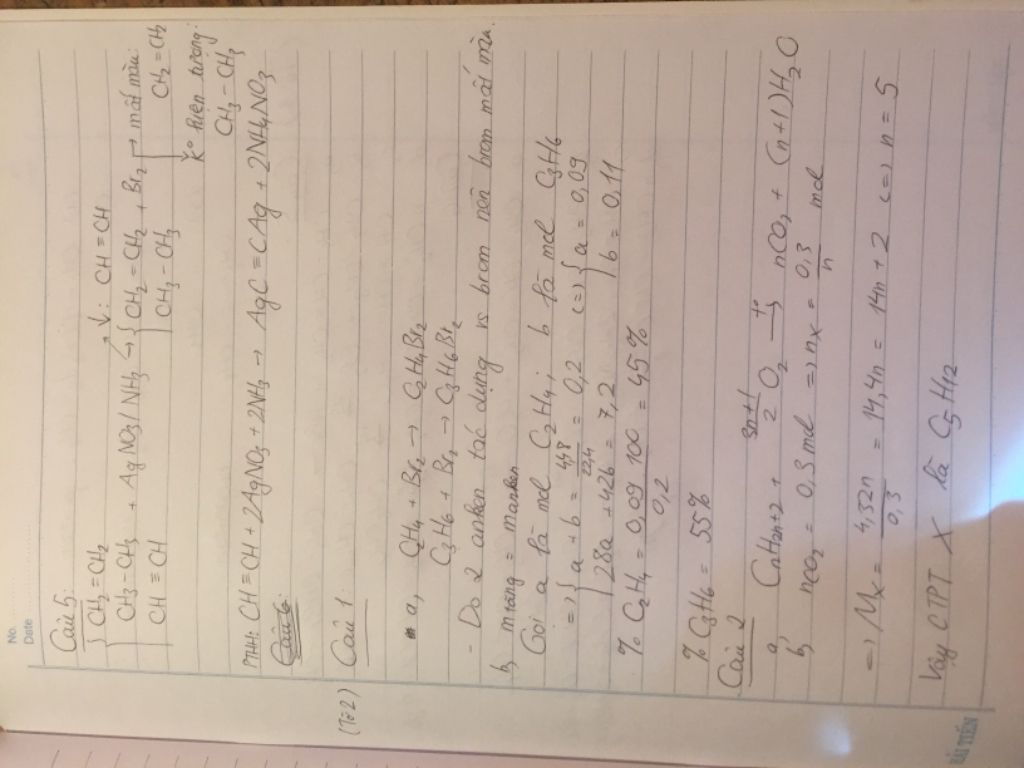 No.
Date
Câu 5:
CH2 = CH2
CH3 - CH3 + AgNO3/NH3 → CH2 = CH2 + Br2 → mất màu: CH2 = CH2
CH ≡ CH
↗ ↓ V: CH ≡ CH
CH3 - CH3
K° hiện tượng: CH3 - CH3
PTHH: CH ≡ CH + 2AgNO3 + 2NH3 → AgC ≡ CAg + 2NH4NO3
(Từ 2) Câu 1:
a, C2H4 + Br2 → C2H4Br2
C3H6 + Br2 → C3H6Br2
- Do 2 anken tác dụng vs brom nên brom mất màu.
b, m tăng = m anken
Gọi a là mol C2H4; b là mol C3H6
=> { a + b = 4,48/22,4 = 0,2 (=) { a = 0,09
28a + 42b = 7,2 b = 0,11
% C2H4 = 0,09/0,2 100 = 45%
% C3H6 = 55%
Câu 2
a, CnH2n+2 + 3n+1/2 O2 t°→ nCO2 + (n+1)H2O
b, nCO2 = 0,3 mol => nX = 0,3/n mol
=> MX = 4,32n/0,3 = 14,4n = 14n + 2 (=) n = 5
Vậy CTPT X là C5H12
HẢI TIẾN